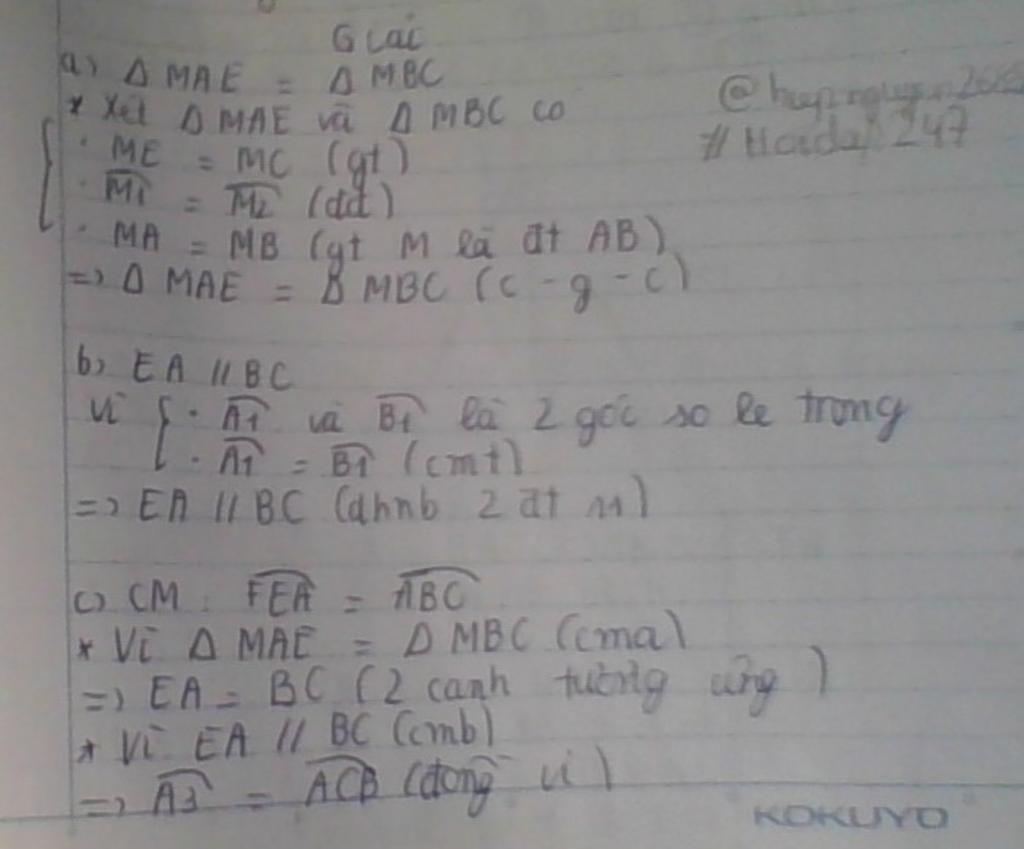 Giải
a) Δ MAE = Δ MBC
* Xét Δ MAE và Δ MBC có
· ME = MC (gt)
· M1 = M2 (dd)
· MA = MB (gt M là đt AB)
=> Δ MAE = Δ MBC (c - g - c)
# 247
b) EA // BC
Vì { · A1 và B1 là 2 góc so le trong
· A1 = B1 (cmt)
=> EA // BC (dhnb 2 đt //)
c) CM : FEA = ABC
* Vì Δ MAE = Δ MBC (cma)
=> EA = BC (2 cạnh tường ứng)
* Vì EA // BC (cmb)
=> A3 = ACB (đồng vị)
KOKUYO